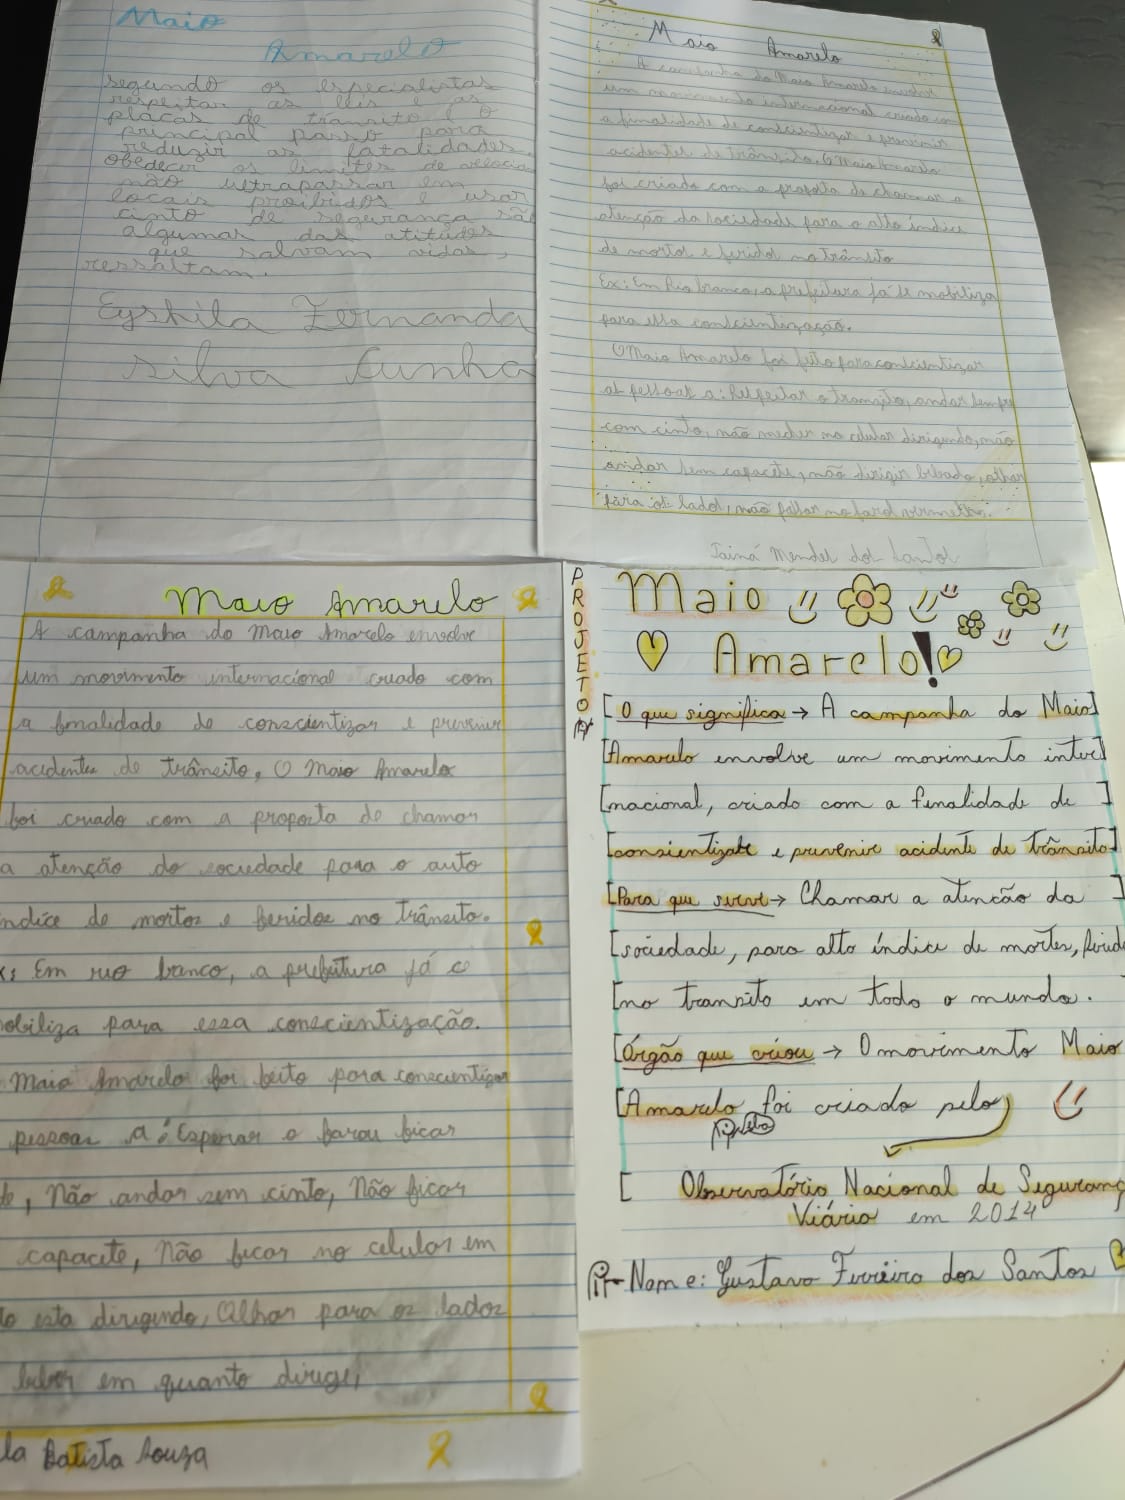 Maio
Amarelo
segundo os especialistas
respeitar as leis e as
placas de trânsito é o
principal passo para
reduzir as fatalidades.
obedecer os limites de velocia
não ultrapassar em
locais proibidos e usar
cinto de segurança são
algumas das atitudes
que salvam vidas,
ressaltam.
Eyshila Fernanda
silva Cunha
Maio Amarelo
A campanha do Maio Amarelo envolve
um movimento internacional criado com
a finalidade de conscientizar e prevenir
acidentes de trânsito. O Maio Amarelo
foi criado com a proposta de chamar a
atenção da sociedade para o alto índice
de mortos e feridos no trânsito
Ex: Em Rio branco, a prefeitura já se mobiliza
para essa conscientização.
O Maio Amarelo foi feito para conscientizar
as pessoas a: Respeitar o transito, andar sempre
com cinto, não mecher no celular dirigindo, não
andar sem capacete, não dirigir bebado, olhar
para os lados, não passar no farol vermelho.
Tainá Mendes dos Santos
Maio Amarelo
A campanha do Maio Amarelo envolve
um movimento internacional criado com
a finalidade de conscientizar e prevenir
acidentes de trânsito. O Maio Amarelo
foi criado com a proposta de chamar
a atenção do sociedade para o auto
índice de mortos e feridos no trânsito.
x: Em rio branco, a prefeitura já c
obiliza para essa conscientização.
Maio Amarelo foi feito para conscientizar
pessoas a: Esperar o farou ficar
de, Não andar sem cinto, Não ficar
capacete, Não ficar no celular em
to esta dirigindo, Olhar para os lados
beber em quanto dirige,
la Batista Souza
PROJETO
Maio
Amarelo!
[O que significa → A campanha do Maio]
[Amarelo envolve um movimento inter]
[nacional, criado com a finalidade de ]
[consientizate e prevenir acidente de trânsito]
[Para que serve → Chamar a atencão da ]
[sociedade, para alto índice de mortes, ferid
[no transito em todo o mundo.
[Órgão que criou → O movimento Maio
[Amarelo foi criado pelo
[ Observatório Nacional de Seguranç
Viário em 2014
Nome: Gustavo Ferreira dos Santos